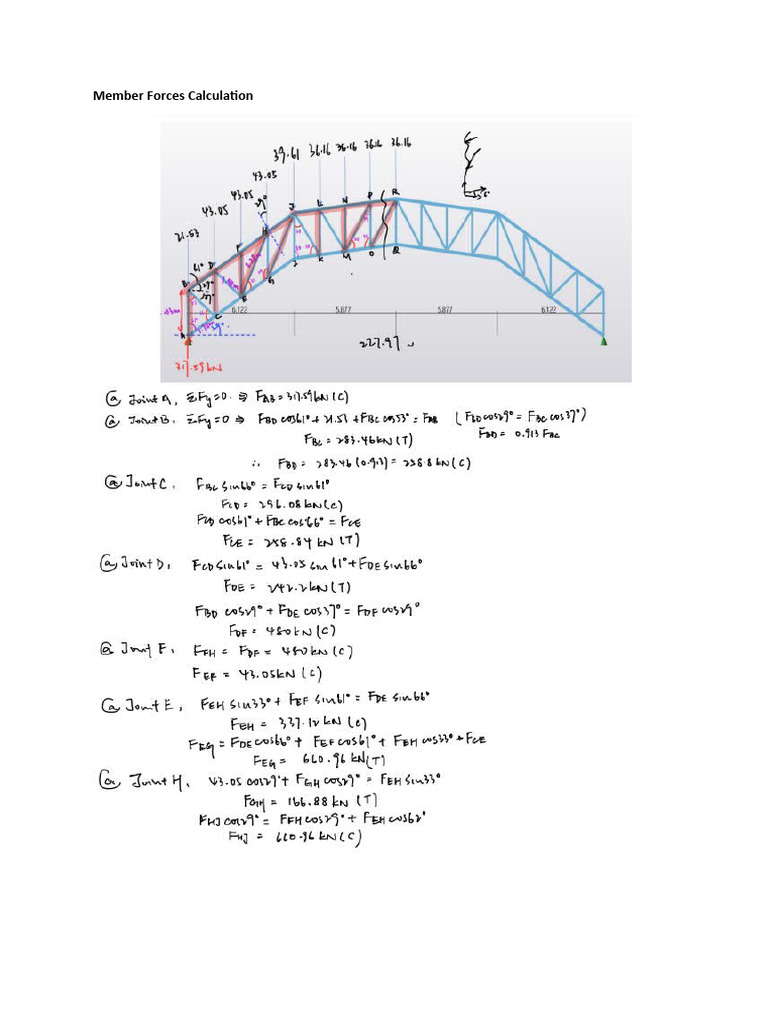 Member Forces Calculation
39.61 36.16 36.16 36.16 36.16
43.05
43.05 29°
43.05
21.53
J L N P R
H
F
D
61°
B
37°
I K M O Q
G
E
C
A
6.122 5.877 5.877 6.122
29°
227.97
317.59kN
@ Joint A, ΣFy=0 ⇒ FAB=317.59kN(C)
@ Joint B, ΣFy=0 ⇒ FBD cos61°+21.53+FBC cos53° = FAB (FBD cos29° = FBC cos37°)
FBC = 283.46kN(T) FBD = 0.913 FBC
∴ FBD = 283.46(0.913) = 258.8kN(C)
@ Joint C, FBC sin66° = FCD sin61°
FCD = 296.08kN(C)
FCD cos61°+FBC cos66° = FCE
FCE = 258.84 kN (T)
@ Joint D, FCD sin61° = 43.05 sin61°+FDE sin66°
FDE = 242.2kN(T)
FBD cos29°+FDE cos37° = FDF cos29°
FDF = 480kN(C)
@ Joint F, FFH = FDF = 480kN(C)
FEF = 43.05kN(C)
@ Joint E, FEH sin33°+FEF sin61° = FDE sin66°
FEH = 337.12kN(C)
FEG = FDE cos66°+ FEF cos61°+ FEH cos33°+FCE
FEG = 660.96kN(T)
@ Joint H, 43.05 cos29°+FGH cos29° = FEH sin33°
FGH = 166.88kN (T)
FHJ cos29° = FFH cos29°+FEH cos62°
FHJ = 660.96kN(C)